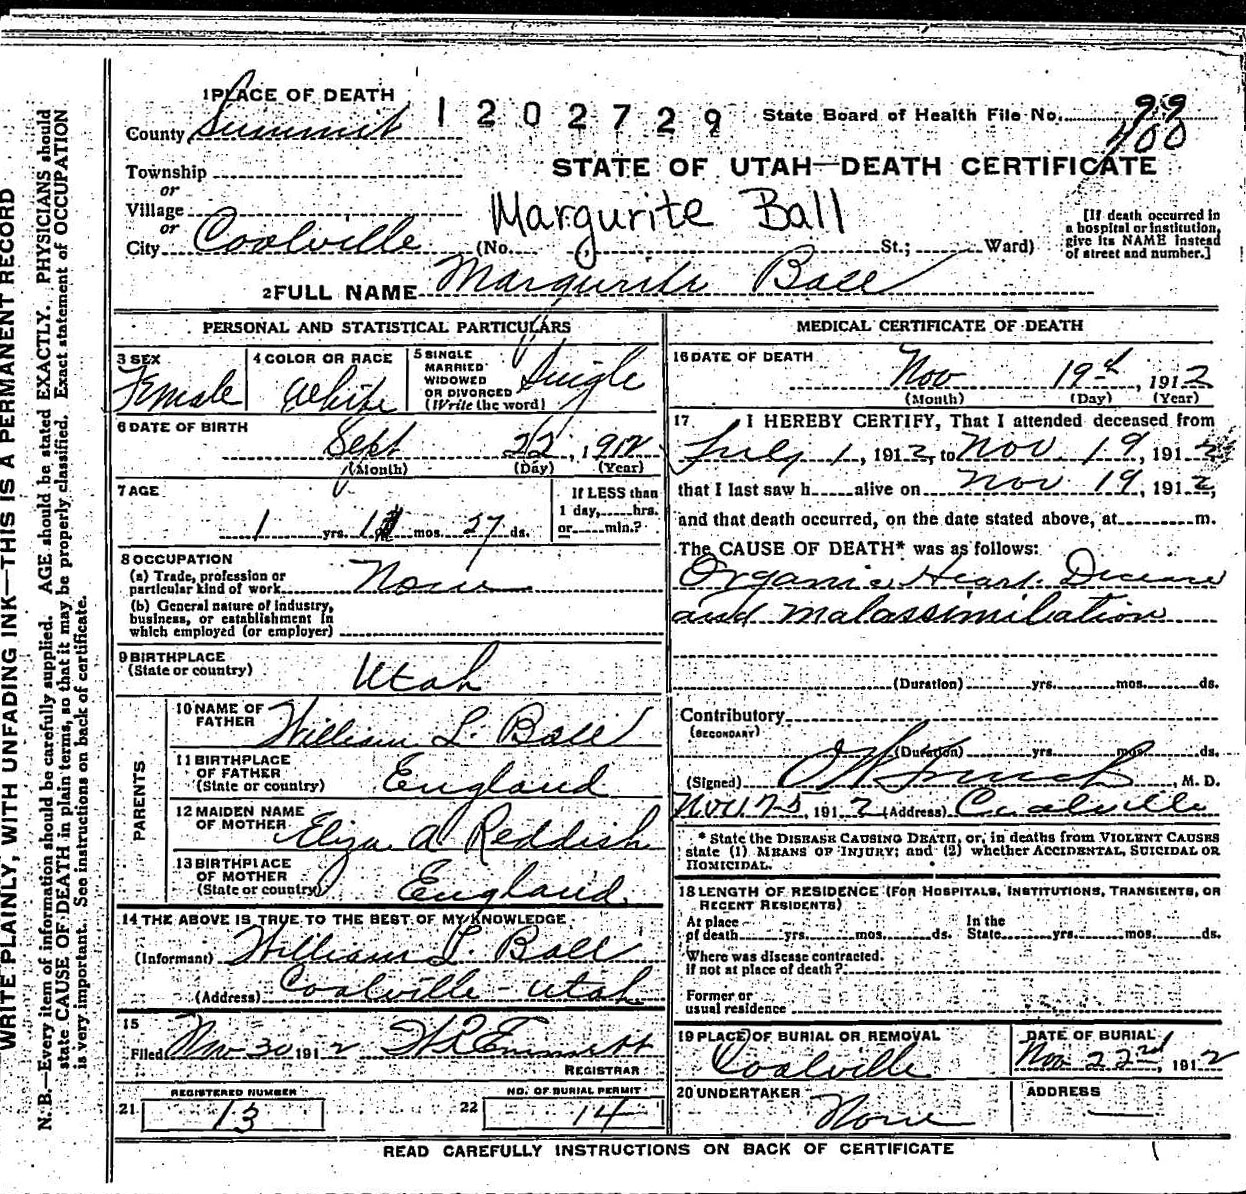 1 PLACE OF DEATH
1202729
State Board of Health File No.
County Summit
STATE OF UTAH—DEATH CERTIFICATE
Township
or
Village
Margurite Ball
or
City Coalville (No. St.; Ward)
[If death occurred in a hospital or institution, give its NAME instead of street and number.]
2 FULL NAME Margurite Ball
PERSONAL AND STATISTICAL PARTICULARS
3 SEX
Female
4 COLOR OR RACE
White
5 SINGLE MARRIED WIDOWED OR DIVORCED (Write the word)
Single
6 DATE OF BIRTH
Sept 22, 191
(Month) (Day) (Year)
7 AGE
1 yrs. 1 mos. 27 ds.
If LESS than 1 day, hrs. or min.?
8 OCCUPATION
(a) Trade, profession or particular kind of work None
(b) General nature of industry, business, or establishment in which employed (or employer)
9 BIRTHPLACE
(State or country) Utah
PARENTS
10 NAME OF FATHER William L. Ball
11 BIRTHPLACE OF FATHER (State or country) England
12 MAIDEN NAME OF MOTHER Eliza A Reddish
13 BIRTHPLACE OF MOTHER (State or country) England
14 THE ABOVE IS TRUE TO THE BEST OF MY KNOWLEDGE
(Informant) William L. Ball
(Address) Coalville - Utah
15
Filed Nov 30 1912
REGISTRAR
21 REGISTERED NUMBER
13
22 NO. OF BURIAL PERMIT
14
MEDICAL CERTIFICATE OF DEATH
16 DATE OF DEATH
Nov 19th, 1912
(Month) (Day) (Year)
17 I HEREBY CERTIFY, That I attended deceased from
July 1, 1912, to Nov. 19, 1912
that I last saw h alive on Nov 19, 1912,
and that death occurred, on the date stated above, at m.
The CAUSE OF DEATH* was as follows:
Organic Heart Decease
and malassimilation
(Duration) yrs. mos. ds.
Contributory
(SECONDARY)
(Duration) yrs. mos. ds.
(Signed) M. D.
Nov 25, 1912 (Address) Coalville
* State the DISEASE CAUSING DEATH, or, in deaths from VIOLENT CAUSES
state (1) MEANS OF INJURY; and (2) whether ACCIDENTAL, SUICIDAL OR
HOMICIDAL.
18 LENGTH OF RESIDENCE (FOR HOSPITALS, INSTITUTIONS, TRANSIENTS, OR
RECENT RESIDENTS)
At place of death yrs. mos. ds. In the State yrs. mos. ds.
Where was disease contracted,
if not at place of death?
Former or
usual residence
19 PLACE OF BURIAL OR REMOVAL
Coalville
DATE OF BURIAL
Nov 22nd, 1912
20 UNDERTAKER
None
ADDRESS
READ CAREFULLY INSTRUCTIONS ON BACK OF CERTIFICATE
WRITE PLAINLY, WITH UNFADING INK—THIS IS A PERMANENT RECORD
N. B.—Every item of information should be carefully supplied. AGE should be stated EXACTLY. PHYSICIANS should
state CAUSE OF DEATH in plain terms, so that it may be properly classified. Exact statement of OCCUPATION
is very important. See instructions on back of certificate.